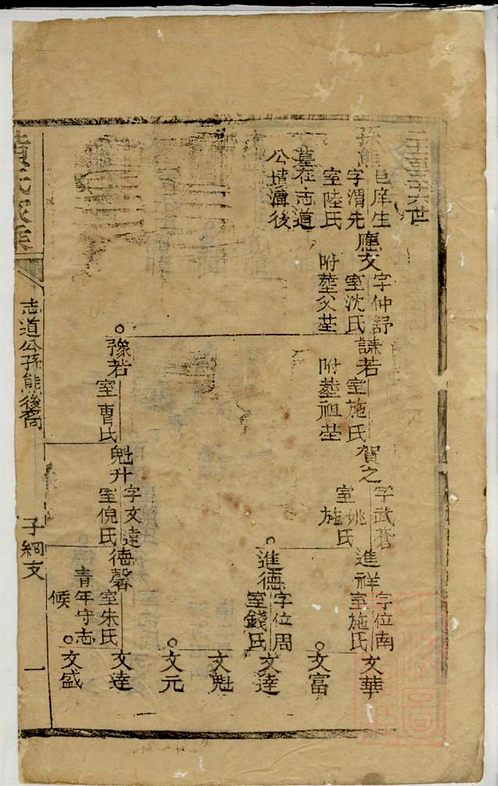 孫熊
邑庠生
字渭先
室陸氏
墓在志道
公墳濟後
應文
字仲舒
室沈氏
附葬父塋
謙若
室施氏
附葬祖塋
賀之
字武蒼
室姚氏
施氏
進祥
字位南
室施氏
文華
文富
進德
字位周
室錢氏
文達
文魁
文元
豫若
室曹氏
魁升
字文遠
室倪氏
德馨
室朱氏
青年守志
候
文達
文盛
黃氏家乘
志道公孫熊後裔
子綱支
一